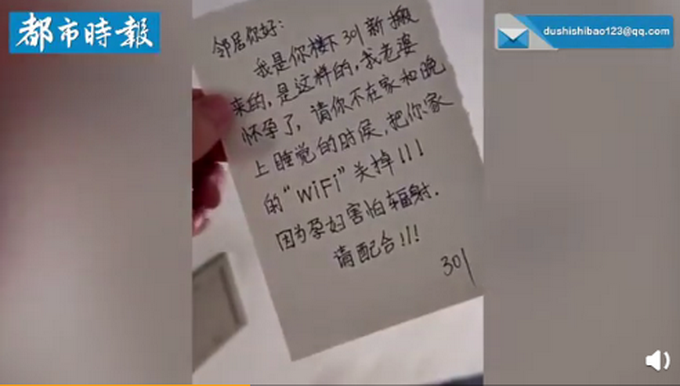 都市時報
dushishibao123@qq.com
邻居你好:
我是你楼下301新搬
来的,是这样的,我老婆
怀孕了,请你不在家和晚
上睡觉的时候,把你家
的“WiFi”关掉!!!
因为孕妇害怕辐射.
请配合!!!
301